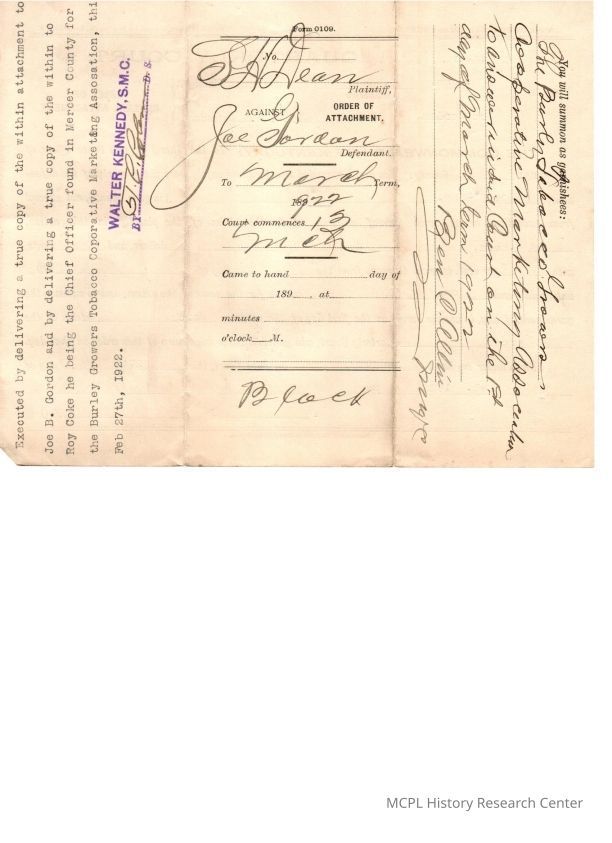 Executed by delivering a true copy of the within attachment to
Joe B. Gordon and by delivering a true copy of the within to
Roy Coke he being the Chief Officer found in Mercer County for
the Burley Growers Tobacco Coporative Marketing Assosation, thi
Feb 27th, 1922.
WALTER KENNEDY, S.M.C.
BY D. S.
Form 0109.
No.
Dean
Plaintiff,
AGAINST
ORDER OF
ATTACHMENT.
Joe Gordon
Defendant.
To March Term,
1922
Court commences 13
Mch
Came to hand day of
189 , at
minutes
o'clock M.
Block
You will summon as garnishees:
The Burley Tobacco Growers
Cooperative Marketing Association
to answer in said Court on the 1st
day of March term 1922
Ben C. Allin